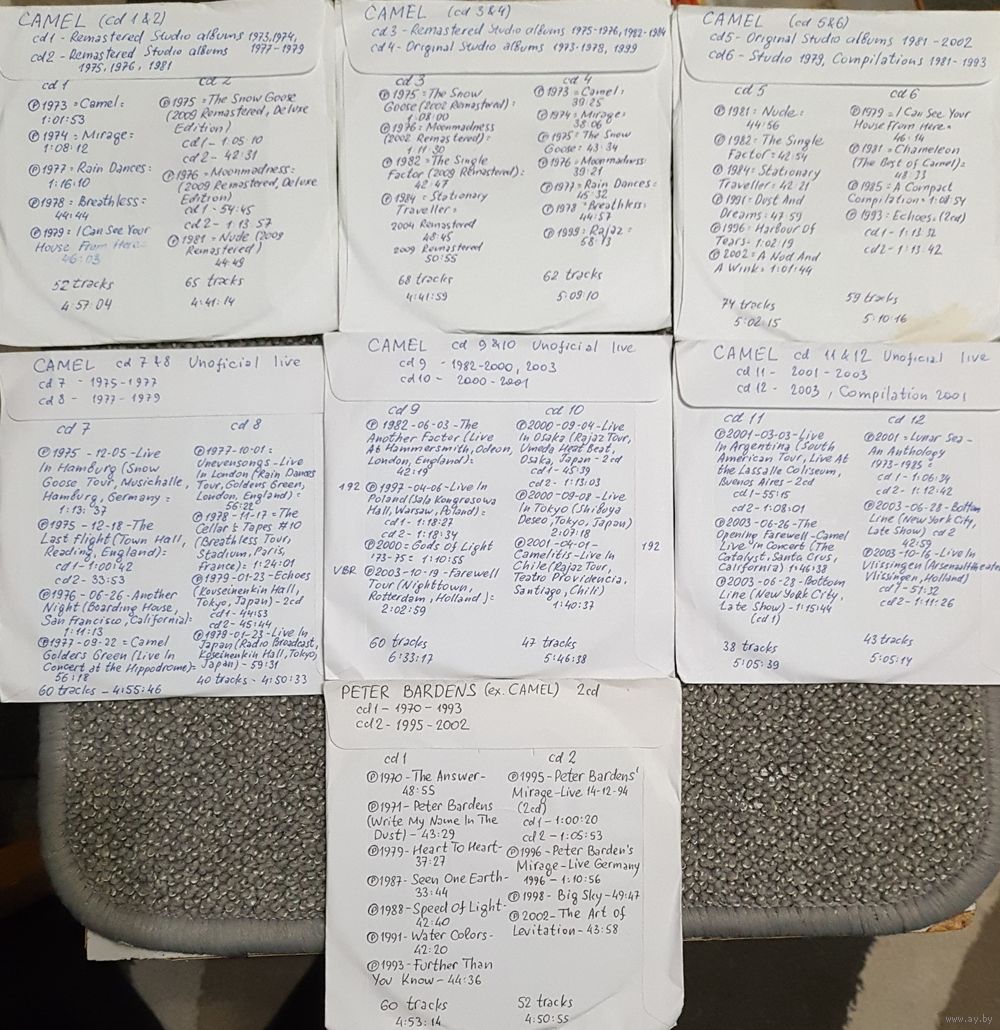 CAMEL (cd 1&2)
cd1 - Remastered Studio albums 1973,1974,
1977-1979
cd2 - Remastered Studio albums
1975, 1976, 1981
cd 1
Ⓟ1973 = Camel:
1:01:53
Ⓟ1974 = Mirage:
1:08:12
Ⓟ1977 = Rain Dances:
1:16:10
Ⓟ1978 = Breathless:
44:44
Ⓟ1979 = I Can See Your
House From Here=
46:03
52 tracks
4:57:04
cd 2
Ⓟ1975 = The Snow Goose
(2009 Remastered, Deluxe
Edition)
cd1 - 1:05:10
cd2 - 42:31
Ⓟ1976 = Moonmadness:
(2009 Remastered, Deluxe
Edition)
cd1 - 54:45
cd2 - 1:13:57
Ⓟ1981 = Nude (2009
Remastered)
44:49
65 tracks
4:41:14
CAMEL (cd 3&4)
cd3 - Remastered Studio albums 1975-1976, 1982-1984
cd4 - Original Studio albums 1973-1978, 1999
cd 3
Ⓟ1975 = The Snow
Goose (2002 Remastered):
1:08:00
Ⓟ1976 = Moonmadness
(2002 Remastered):
1:11:30
Ⓟ1982 = The Single
Factor (2009 Remastered):
42:47
Ⓟ1984 = Stationary
Traveller=
2004 Remastered
48:45
2009 Remastered
50:55
68 tracks
4:41:59
cd 4
Ⓟ1973 = Camel:
39:25
Ⓟ1974 = Mirage:
38:06
Ⓟ1975 = The Snow
Goose: 43:34
Ⓟ1976 = Moonmadness:
39:21
Ⓟ1977 = Rain Dances=
45:32
Ⓟ1978 = Breathless:
44:57
Ⓟ1999: Rajaz=
58:13
62 tracks
5:09:10
CAMEL (cd 5&6)
cd5 - Original Studio albums 1981-2002
cd6 - Studio 1979, Compilations 1981-1993
cd 5
Ⓟ1981: Nude:
44:56
Ⓟ1982: The Single
Factor = 42:54
Ⓟ1984: Stationary
Traveller: 42:21
Ⓟ1991: Dust And
Dreams: 47:59
Ⓟ1996: Harbour Of
Tears- 1:02:19
Ⓟ2002 = A Nod And
A Wink = 1:01:44
74 tracks
5:02:15
cd 6
Ⓟ1979 = I Can See Your
House From Here=
46:14
Ⓟ1981 = Chameleon
(The Best of Camel)=
48:33
Ⓟ1985 = A Compact
Compilation= 1:08:54
Ⓟ1993: Echoes: (2cd)
cd1 - 1:13:32
cd2 - 1:13:42
59 tracks
5:10:16
CAMEL cd 7&8 Unoficial live
cd 7 - 1975-1977
cd 8 - 1977-1979
cd 7
Ⓟ1975-12-05-Live
In Hamburg (Snow
Goose Tour, Musichalle,
Hamburg, Germany=
1:13:37
Ⓟ1975-12-18-The
Last Flight (Town Hall,
Reading, England)=
cd1 - 1:00:42
cd2 - 33:53
Ⓟ1976-06-26-Another
Night (Boarding House,
San Francisco, California)=
1:11:13
Ⓟ1977-09-22 = Camel
Golders Green (Live In
Concert at the Hippodrome)=
56:18
60 tracks - 4:55:46
cd 8
Ⓟ1977-10-01=
Unevensongs-Live
In London (Rain Dances
Tour, Goldens Green,
London, England)=
56:22
Ⓟ1978-11-17=The
Cellar's Tapes #10
(Breathless Tour,
Stadium, Paris,
France)= 1:24:01
Ⓟ1979-01-23-Echoes
(Kouseinenkin Hall,
Tokyo, Japan) - 2cd
cd1 - 44:53
cd2 - 45:44
Ⓟ1979-01-23-Live In
Japan (Radio Broadcast,
Koseinenkin Hall, Tokyo,
Japan) - 59:31
40 tracks - 4:50:33
CAMEL cd 9&10 Unoficial live
cd 9 - 1982-2000, 2003
cd 10 - 2000-2001
cd 9
Ⓟ1982-06-03-The
Another Factor (Live
At Hammersmith, Odeon,
London, England)=
42:19
192 Ⓟ1997-04-06-Live In
Poland (Sala Kongresowa
Hall, Warsaw, Poland)=
cd1 - 1:18:27
cd2 - 1:18:34
Ⓟ2000= Gods of Light
'73-75= 1:10:55
VBR Ⓟ2003-10-19-Farewell
Tour (Nighttown,
Rotterdam, Holland)=
2:02:59
60 tracks
6:33:17
cd 10
Ⓟ2000-09-04-Live
In Osaka (Rajaz Tour,
Umeda Heat Beat,
Osaka, Japan - 2cd
cd1 - 45:39
cd2 - 1:13:03
Ⓟ2000-09-08-Live
In Tokyo (Shibuya
Deseo, Tokyo, Japan)
2:07:18
Ⓟ2001-04-01-
Camelitis-Live In 192
Chile (Rajaz Tour,
Teatro Providencia,
Santiago, Chili)
1:40:37
47 tracks
5:46:38
CAMEL cd 11&12 Unoficial live
cd 11 - 2001-2003
cd 12 - 2003, Compilation 2001
cd 11
Ⓟ2001-03-03-Live
In Argentina (South
American Tour, Live At
the Lassalle Coliseum,
Buenos Aires - 2cd
cd1 - 55:15
cd2 - 1:08:01
Ⓟ2003-06-26-The
Opening Farewell-Camel
Live In Concert (The
Catalyst, Santa Crus,
California) 1:46:38
Ⓟ2003-06-28-Bottom
Line (New York City,
Late Show) - 1:15:44
(cd1)
38 tracks
5:05:39
cd 12
Ⓟ2001 = Lunar Sea-
An Anthology
1973-1985=
cd1 - 1:06:34
cd2 - 1:12:42
Ⓟ2003-06-28-Bottom
Line (New York City,
Late Show) cd 2
42:59
Ⓟ2003-10-16-Live In
Vlissingen (Arsenaaltheater,
Vlissingen, Holland)
cd1 - 51:32
cd2 - 1:11:26
43 tracks
5:05:14
PETER BARDENS (ex. CAMEL) 2cd
cd1 - 1970-1993
cd2 - 1995-2002
cd 1
Ⓟ1970-The Answer-
48:55
Ⓟ1971-Peter Bardens
(Write My Name In The
Dust) - 43:29
Ⓟ1979-Heart To Heart-
37:27
Ⓟ1987-Seen One Earth-
33:44
Ⓟ1988-Speed Of Light-
42:40
Ⓟ1991-Water Colors-
42:20
Ⓟ1993-Further Than
You Know-44:36
60 tracks
4:53:14
cd 2
Ⓟ1995-Peter Bardens'
Mirage-Live 14-12-94
(2cd)
cd1 - 1:00:20
cd2 - 1:05:53
Ⓟ1996-Peter Barden's
Mirage-Live Germany
1996 - 1:10:56
Ⓟ1998-Big Sky-49:47
Ⓟ2002-The Art of
Levitation-43:58
52 tracks
4:50:55
www.ay.by